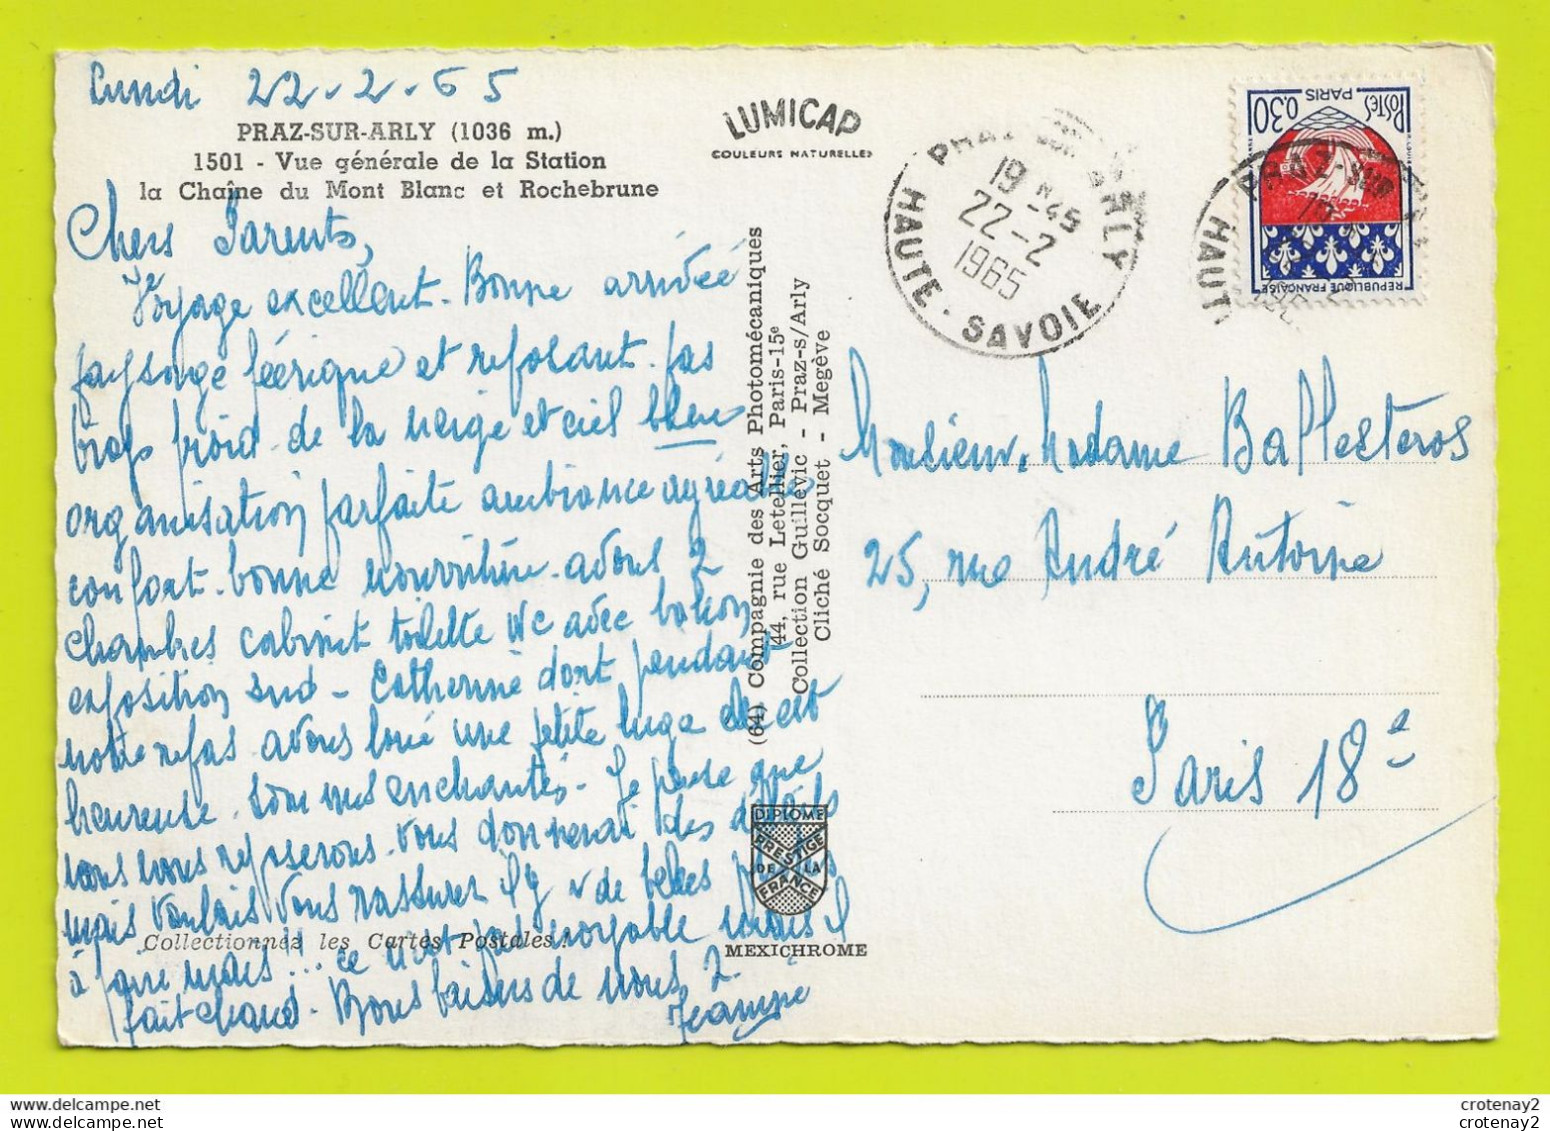 Lundi 22-2-65
PRAZ-SUR-ARLY (1036 m.)
1501 - Vue générale de la Station
la Chaîne du Mont Blanc et Rochebrune
Chers Parents,
Voyage excellent - Bonne arrivée
paysage féerique et reposant - pas
trop froid - de la neige et ciel bleu
organisation parfaite ambiance agréable
confort - bonne nourriture - avons 2
chambres cabinet toilette WC avec balcon
exposition sud - Catherine dort pendant
notre repas - avons loué une petite luge elle est
heureuse - sommes enchantés - Je pense que
nous nous reposerons - vous donnerai des détails
mais voulais vous rassurer Il y a de belles
à faire mais !!! ... ce n'est pas
fait chaud - Bons baisers de nous 2
LUMICAP
COULEURS NATURELLES
(64) Compagnie des Arts Photomécaniques
44, rue Letellier, Paris-15e
Collection Guillevic - Praz-s/Arly
Cliché Socquet - Megève
DIPLOME
PRESTIGE
DE LA
FRANCE
MEXICHROME
Collectionnez les Cartes Postales !
PRAZ SUR ARLY
19 H 45
22-2
1965
HAUTE-SAVOIE
POSTES
PARIS
0,30
REPUBLIQUE FRANÇAISE
PRAZ-SUR
HAUT
Monsieur, Madame Ballesteros
25, rue André Antoine
Paris 18e
crotenay2
crotenay2